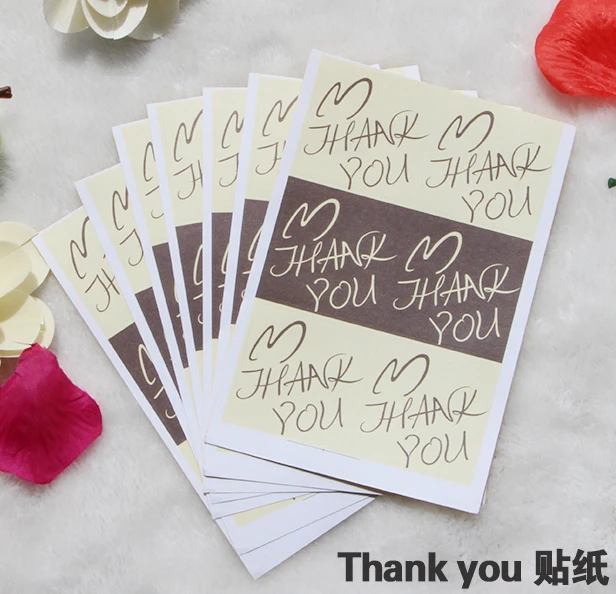 THANK
YOU
THANK
YOU
THANK
YOU
THANK
YOU
THANK
YOU
THANK
YOU
Thank you 贴纸